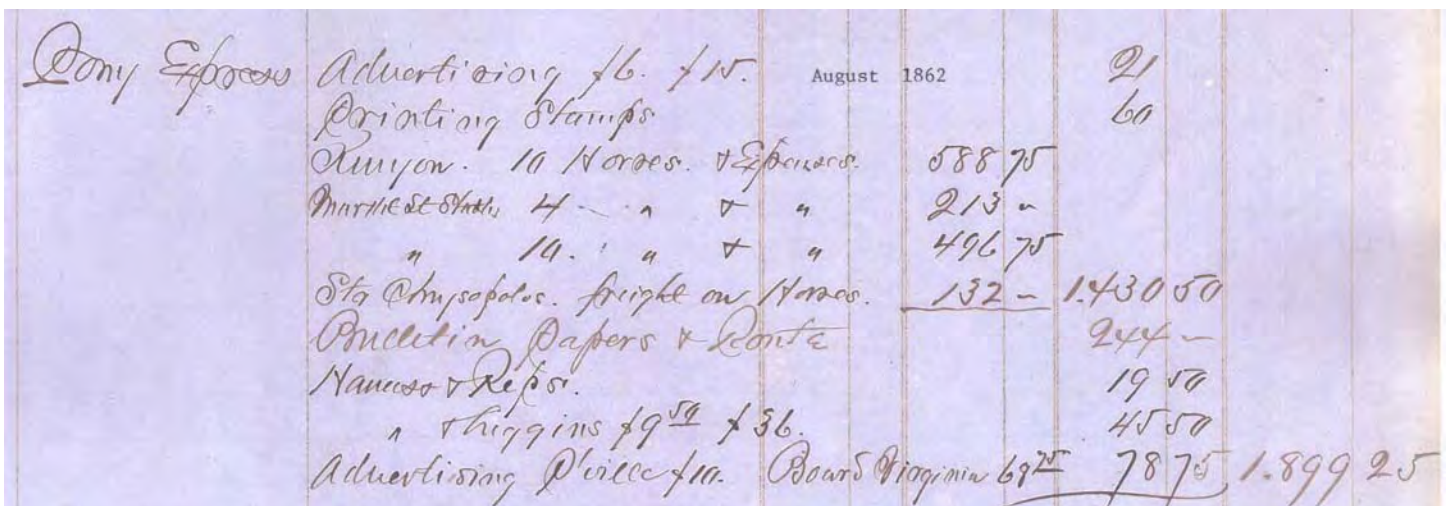 Pony Express Advertising $6. $15. August 1862 21
Printing Stamps 60
Runyon. 10 Horses. & Expenses. 588 75
Market St Stable 4 - " & " 213 -
" 10. " & " 496 75
Str Chrysopolis. freight on Horses. 132 - 1.430 50
Bulletin Papers & 244 -
Harness & Reps. 19 50
" & Higgins $9 50 $36. 45 50
Advertising P'ville $10. Board Virginia 68 75 78 75 1.899 25